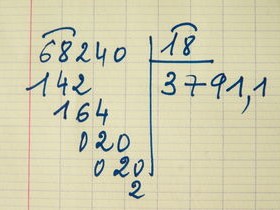 68240 | 18
142 | 3791,1
164
020
020
2